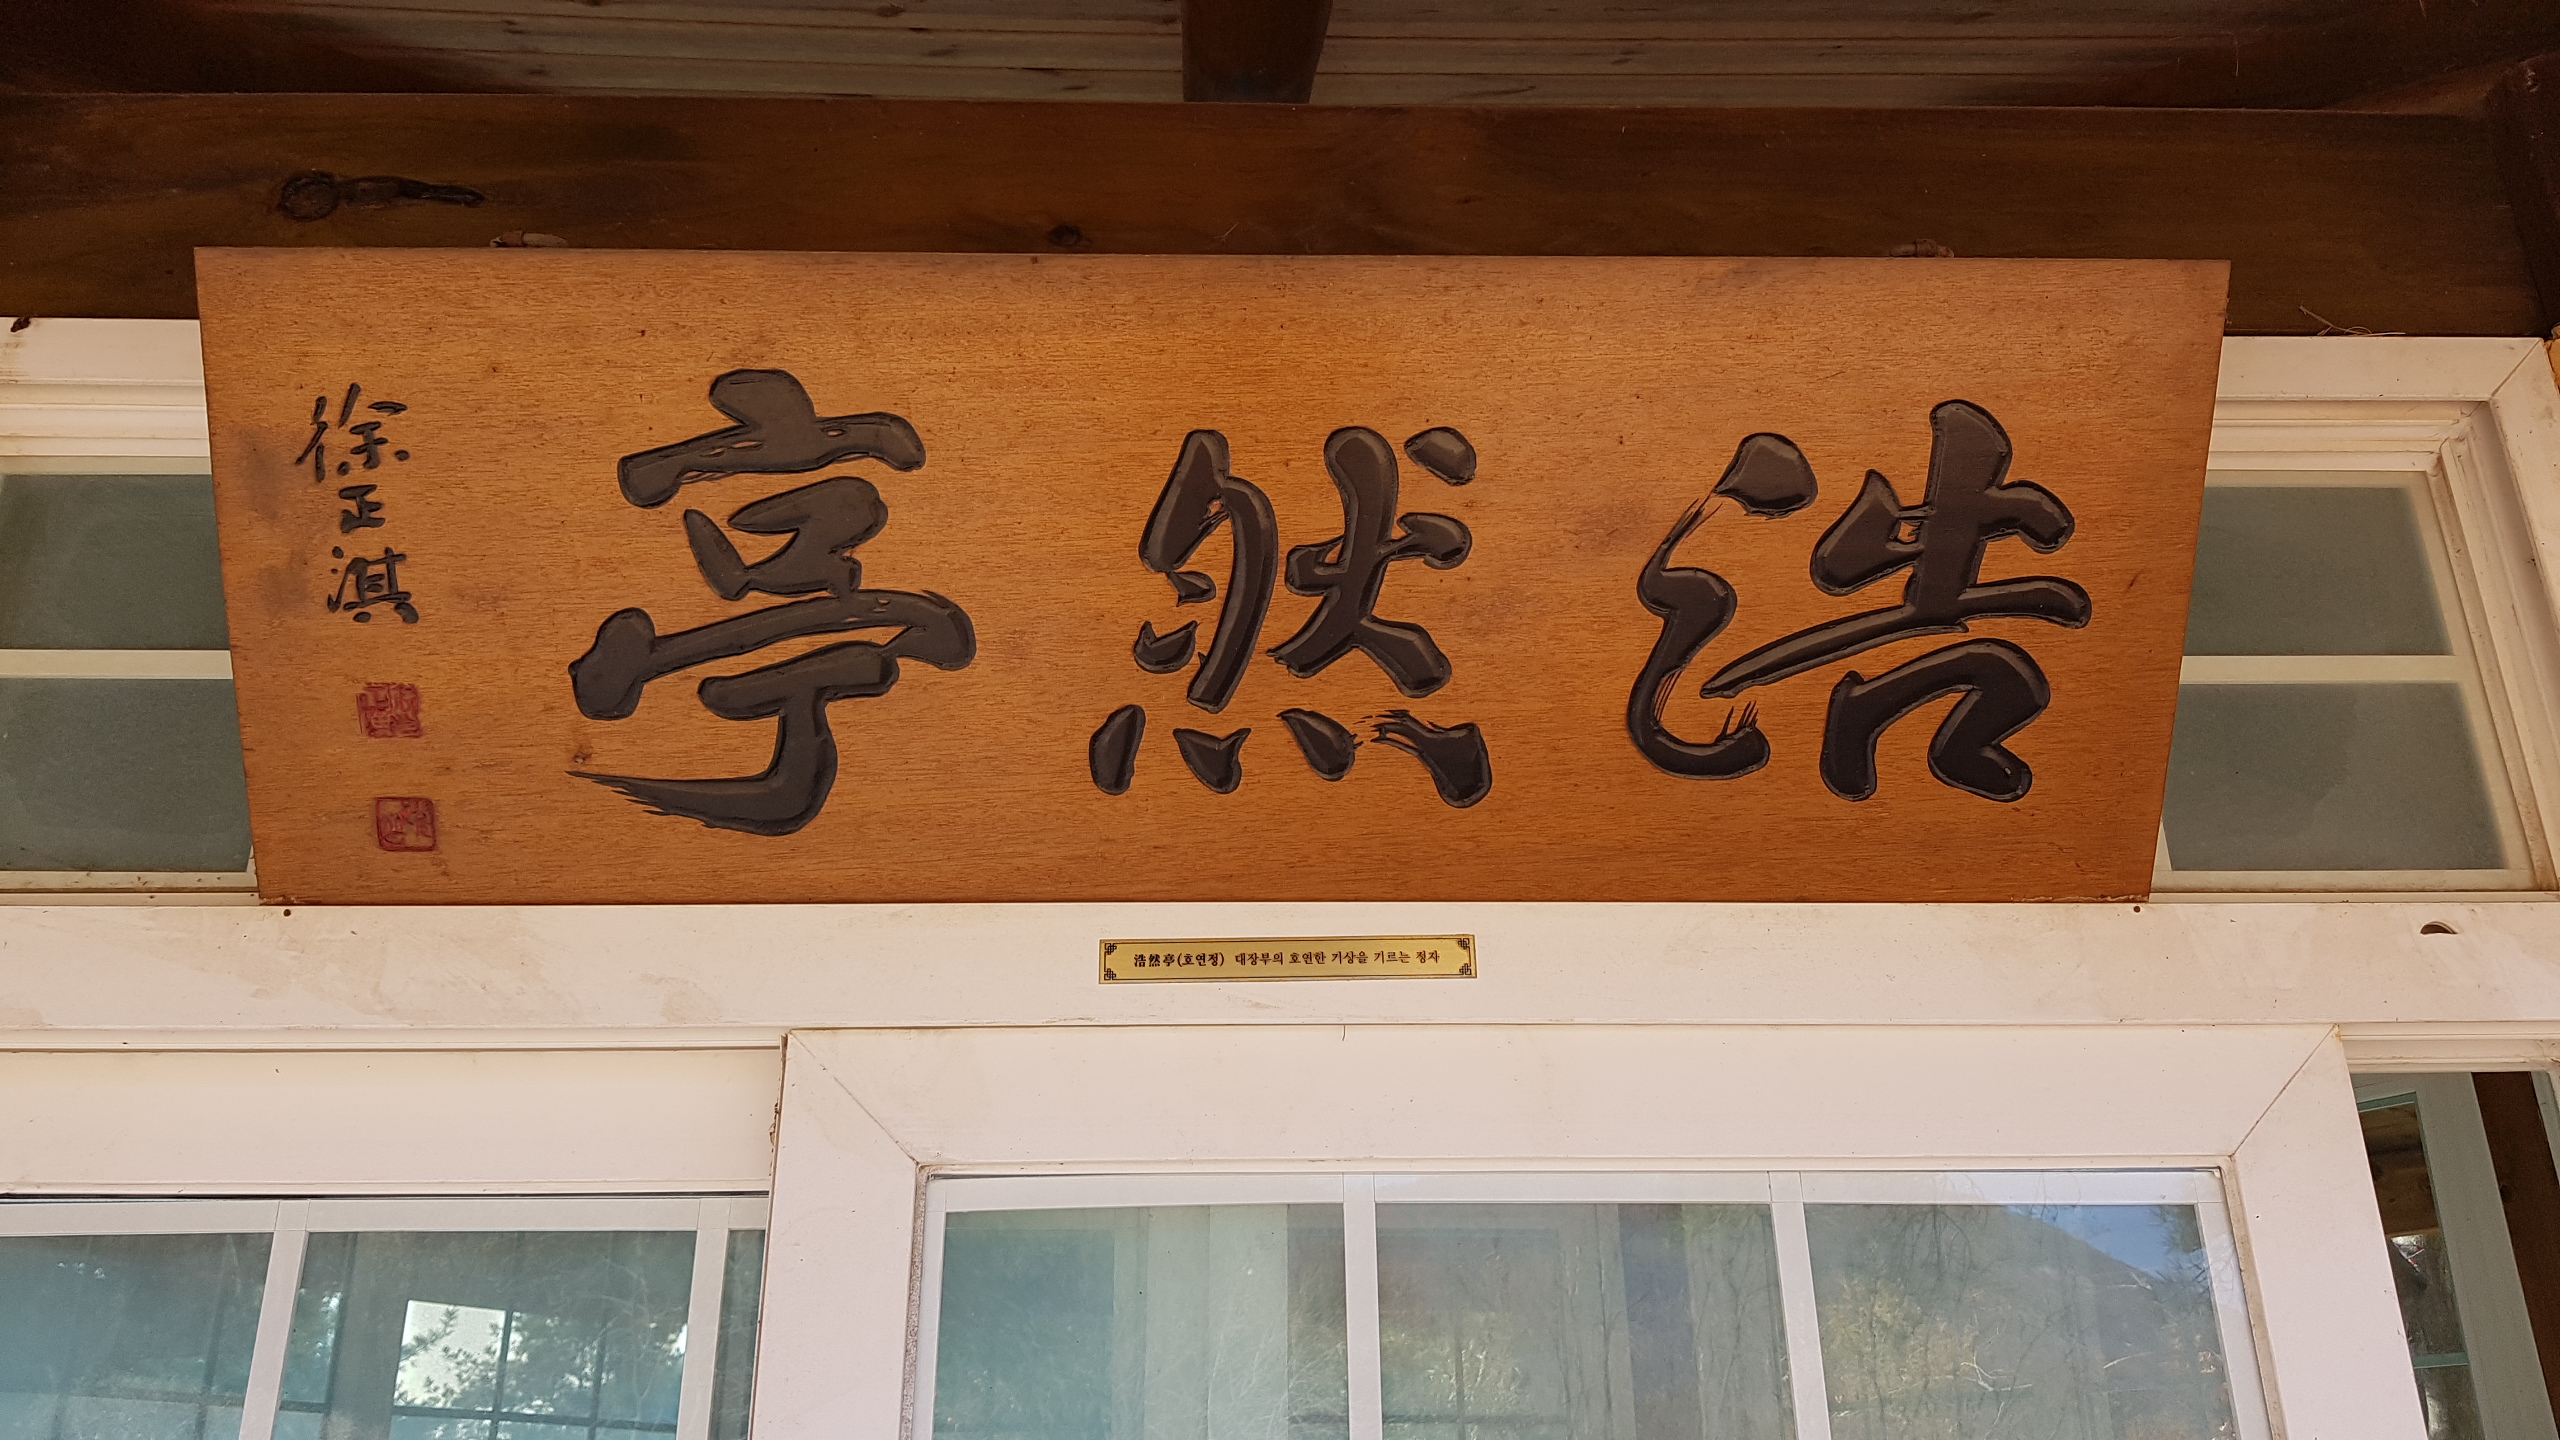 浩然亭
徐正淇
浩然亭(호연정) 대장부의 호연한 기상을 기르는 정자